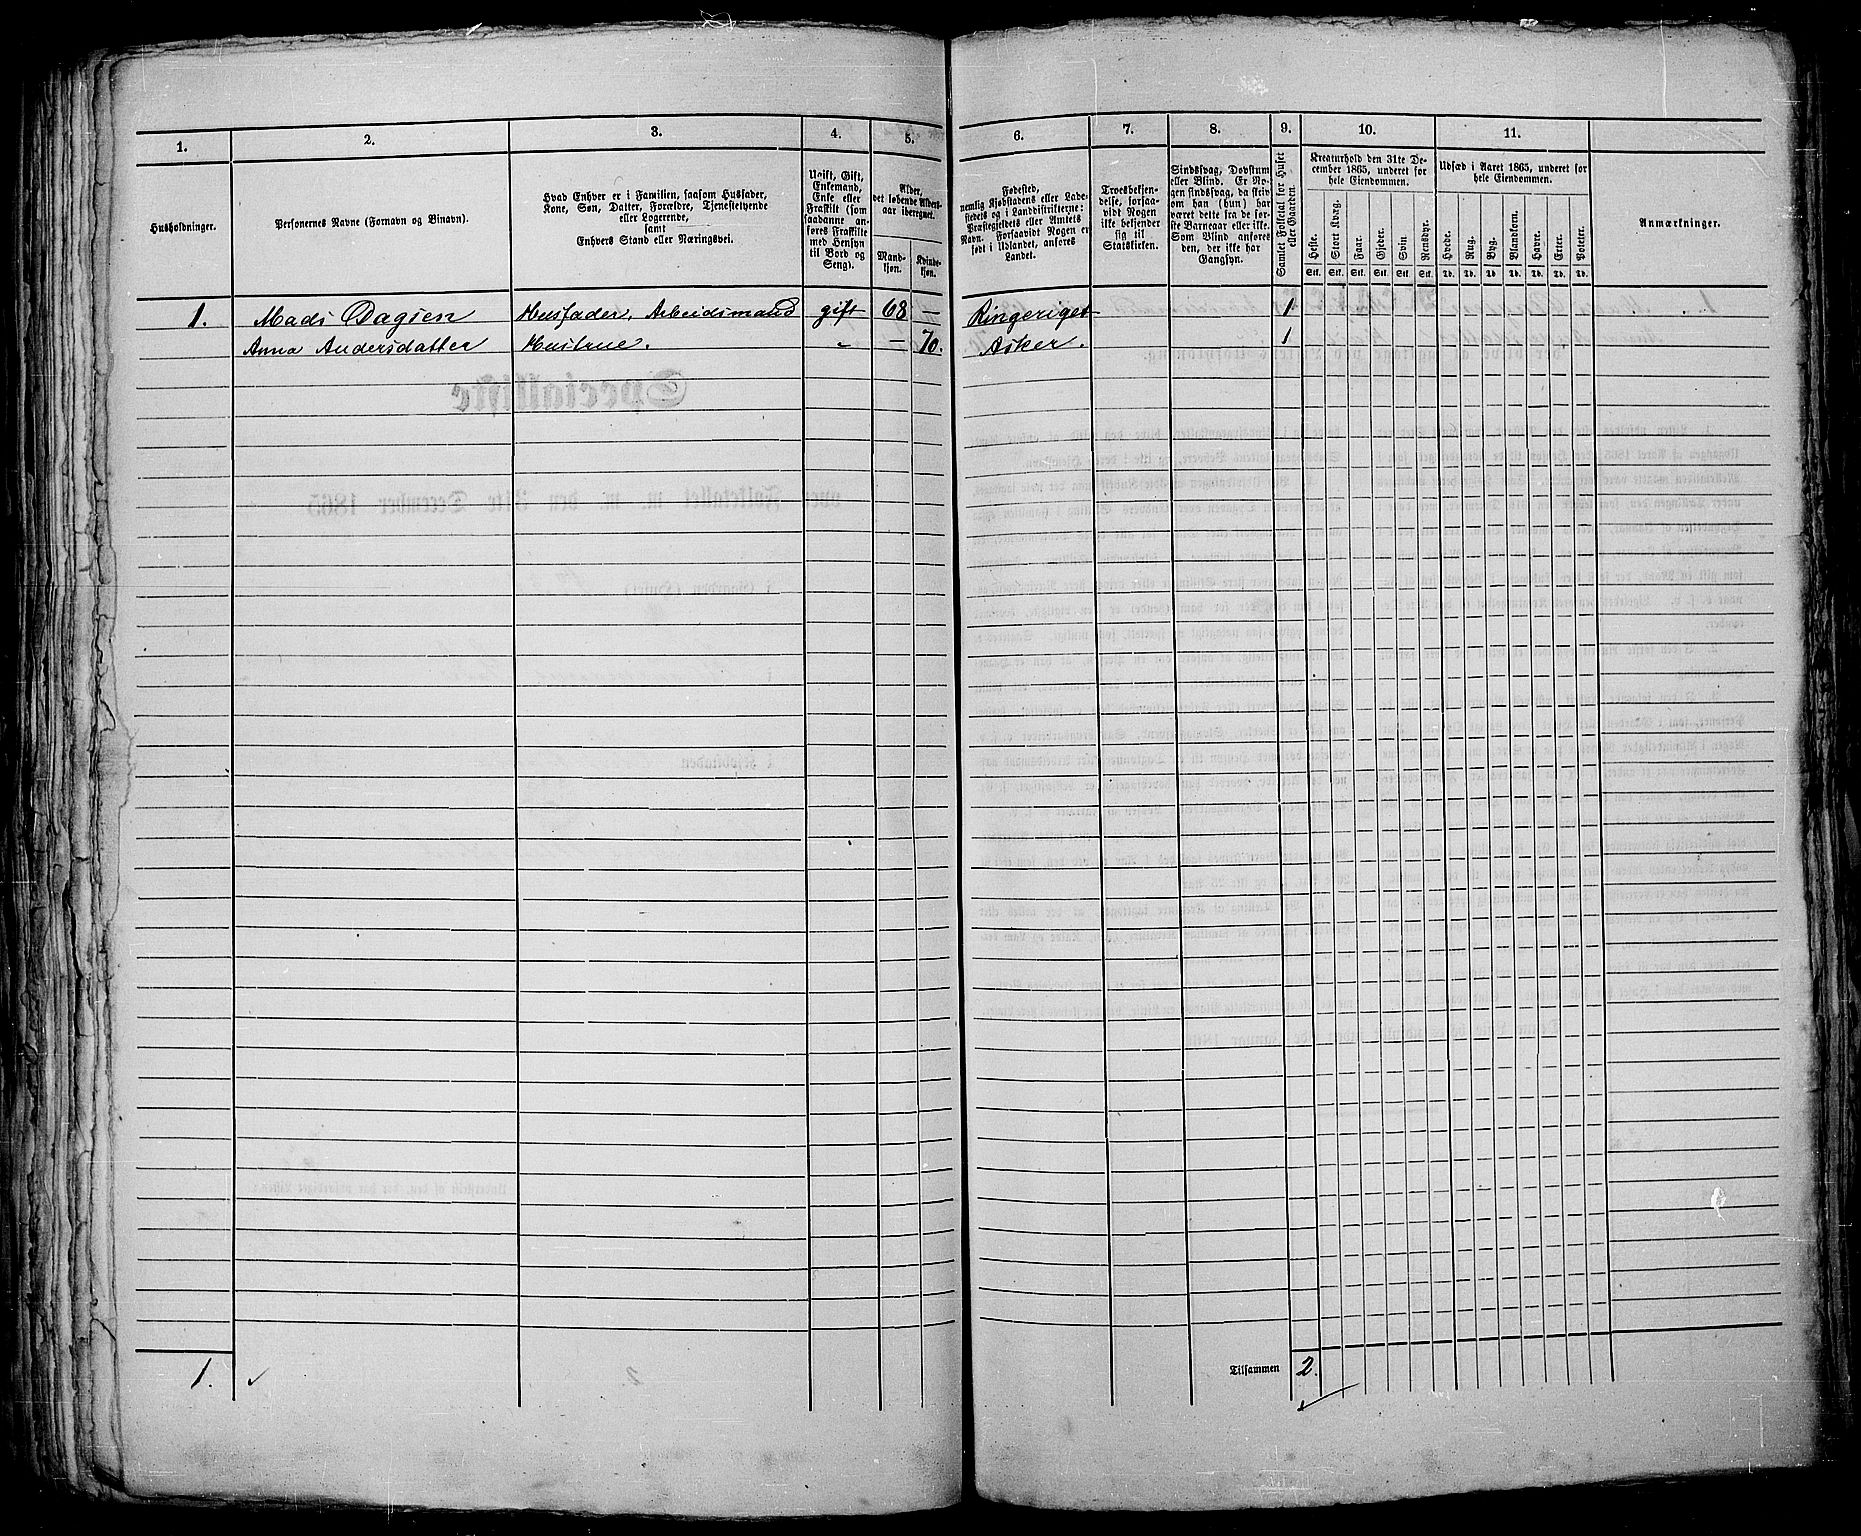 1. 2. 3. 4. 5. 6. 7. 8. 9. 10. 11.
Husholdninger.
Personernes Navne (Fornavn og Binavn).
Hvad Enhver er i Familien, saasom Husfader,
Kone, Søn, Datter, Forældre, Tjenestetyende
eller Logerende,
samt
Enhvers Stand eller Næringsvei.
Ugift, Gift,
Enkemand,
Enke eller
Fraskilt (som
saadanne an-
føres Fraskilte
med Hensyn
til Bord og
Seng).
Alder,
det løbende Alders-
aar iberegnet.
Mand-
kjøn.
Kvinde-
kjøn.
Fødested,
nemlig Kjøbstadens eller Lade-
stedets og i Landdistrikterne:
Præstegjeldets eller Amtets
Navn. Forsaavidt Nogen er
født i Udlandet, anføres
Landet.
Troesbekjen-
delse, forsaa-
vidt Nogen
ikke bekjender
sig til
Statskirken.
Sindssvag, Døvstum
eller Blind. Er No-
gen sindssvag, da skri-
ves om han (hun) har
været dette fra de før-
ste Barneaar eller ikke.
Som Blind anføres
den, der ikke har
Gangsyn.
Samlet Folketal for Huset
eller Gaarden.
Kreaturhold den 31te De-
cember 1865, underet for
hele Eiendommen.
Heste. Stort Kvæg. Faar. Gjeder. Svin Rensdyr.
Stk. Stk. Stk. Stk. Stk. Stk.
Udsæd i Aaret 1865, underet for
hele Eiendommen.
Hvede. Rug. Byg. Blandkorn. Havre. Erter. Poteter.
Td. Td. Td. Td. Td. Td. Td.
Anmærkninger.
1. Mads Dagsen Husfader, Arbeidsmand gift 68 — Ringeriget 1
Anna Andersdatter Hustrue. „ — 70. Asker. 1
1. Tilsammen 2.